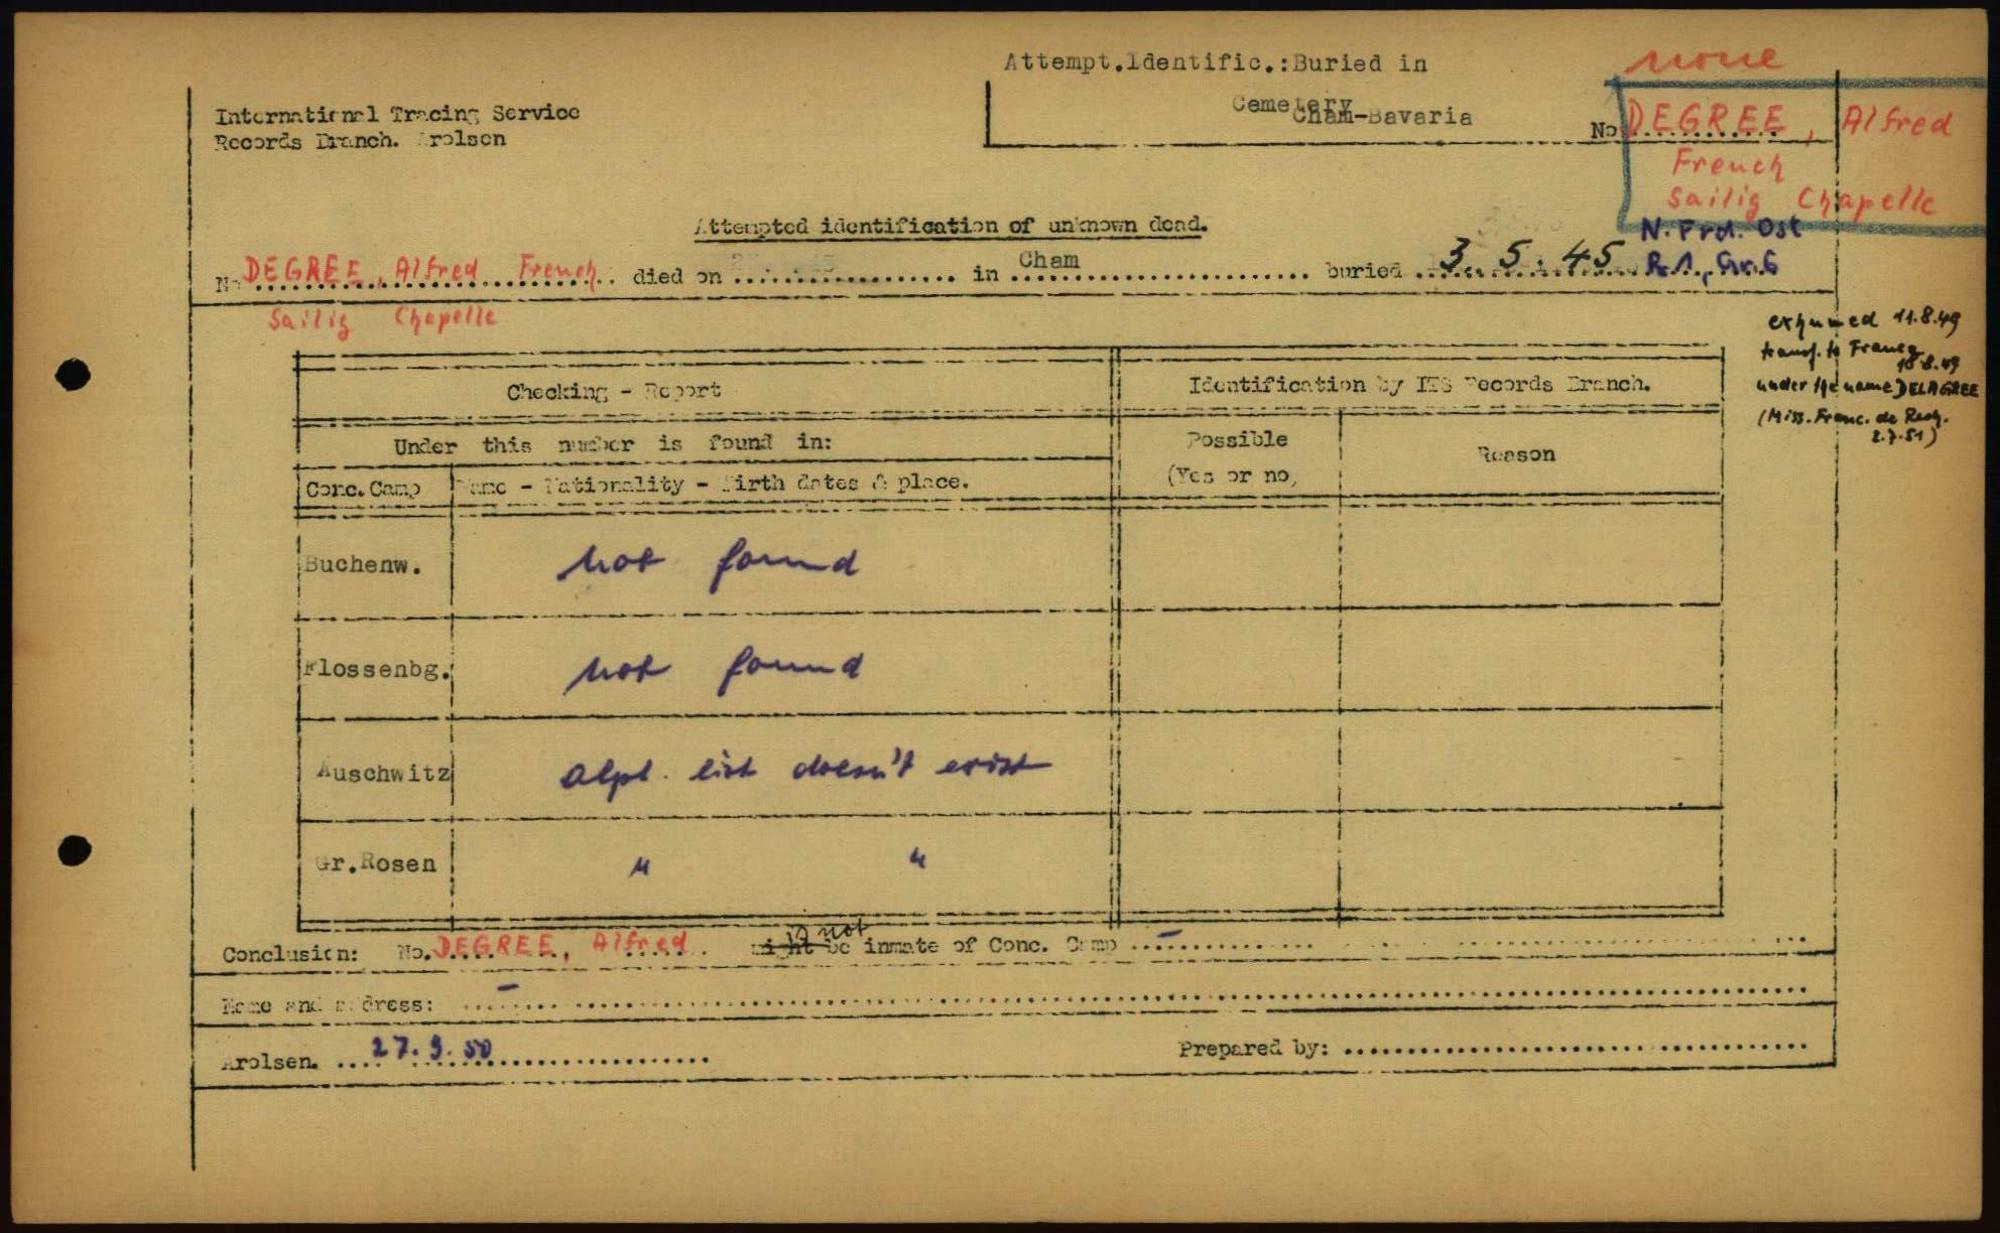 none
Attempt.Identific.:Buried in
Cemetery
Cham-Bavaria
No. DEGREE, Alfred
French
Sailig Chapelle
International Tracing Service
Records Branch. Arolsen
Attempted identification of unknown dead.
N. Frd. Ost
R.1, Gr.6
No DEGREE, Alfred French died on .......... in Cham .......... buried 3. 5. 45
Sailig Chapelle
exhumed 11.8.49
transf. to France
18.8.49
under the name DELAGREE
(Miss. Franc. de Rech.
2.7.51)
Checking - Report
Identification by ITS Records Branch.
Under this number is found in:
Possible
(Yes or no)
Reason
Conc. Camp
Name - Nationality - Birth dates & place.
Buchenw. not found
Flossenbg. not found
Auschwitz alph. list doesn't exist
Gr.Rosen " "
Conclusion: No. DEGREE, Alfred. might be is not inmate of Conc. Camp –
Name and address: –
Arolsen. 27. 9. 50
Prepared by: ..........